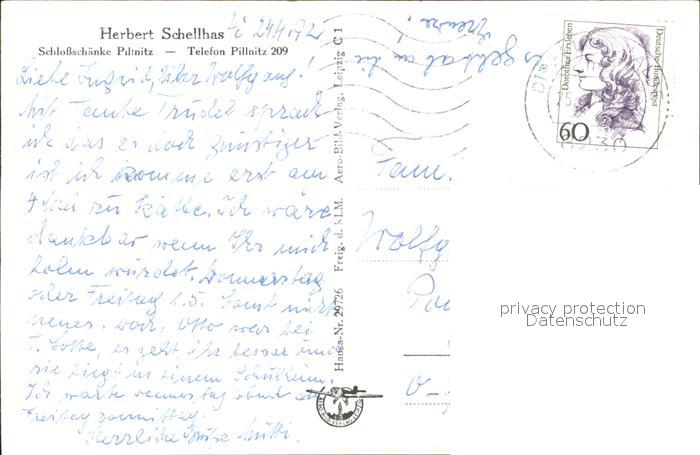 Herbert Schellhas
Schloßschänke Pillnitz — Telefon Pillnitz 209
24.4.92
Liebe Ingrid, lieber Wolfgang!
Mit Tante Trudel sprach
ich das es doch günstiger
ist ich komme erst am
4 Mai zu Käthe. Ich wäre
dankbar wenn Ihr mich
holen würdet. Donnerstag
oder Freitag 1.5. Sonst nichts
neues. Otto war bei
T. Lotte, es geht ihr besser und
sie liegt in einem
Ich warte Donnerstag abend
Freitag vormittag.
Herzliche Grüße Mutti.
Grenze!
es geht ab an die
Hansa-Nr. 29726 Freig. d. KLM. Aero-Bild-Verlag, Leipzig C 1
Fam.
Wolfg
O-
Dorothea Erxleben
Deutsche Bundespost
60
privacy protection
Datenschutz